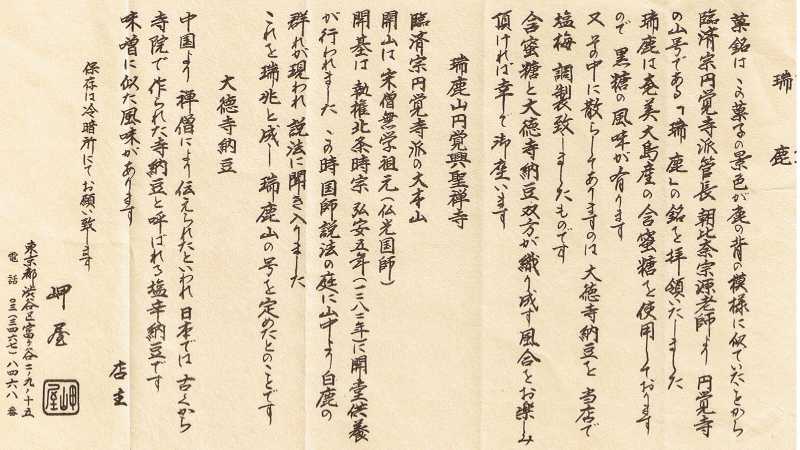 瑞鹿
菓銘は この菓子の景色が鹿の背の模様に似ていたことから
臨済宗円覚寺派管長 朝比奈宗源老師より 円覚寺
の山号である「瑞鹿」の銘を拝領いたしました
瑞鹿は奄美大島産の含蜜糖を使用しております
ので 黒糖の風味が有ります
又 その中に散らしてありますのは 大徳寺納豆を 当店で
塩梅 調製致しましたものです
含蜜糖と大徳寺納豆双方が織り成す風合をお楽しみ
頂ければ幸いで御座います
瑞鹿山円覚興聖禅寺
臨済宗円覚寺派の大本山
開山は 宋僧無学祖元(仏光国師)
開基は 執権北条時宗 弘安五年(一二八二年)に開堂供養
が行われました この時国師説法の庭に山中より白鹿の
群れが現われ 説法に聞き入りました
これを瑞兆と成し 瑞鹿山の号を定めたとのことです
大徳寺納豆
中国より 禅僧により伝えられたといわれ 日本では 古くから
寺院で作られた寺納豆と呼ばれる塩辛納豆です
味噌に似た風味があります
保存は冷暗所にてお願い致します
店主
岬屋
岬屋
東京都渋谷区富ヶ谷二ノ九ノ十五
電話 〇三(三四六七)八四六八番